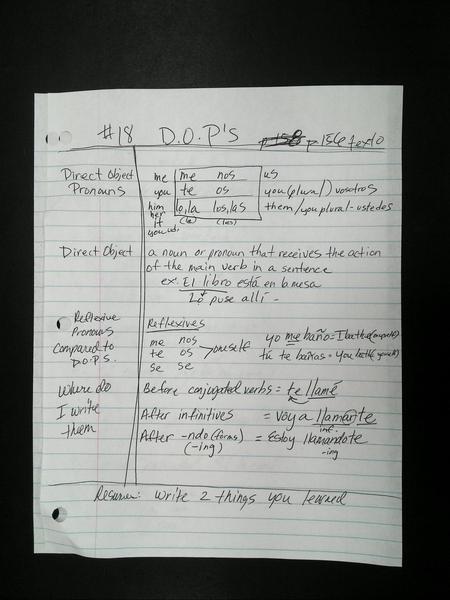 #18 D.O.P's p156 texto
Direct Object Pronouns
me me nos us
you te os you (plural) vosotros
him her it you ud. lo, la los, las them/you plural - ustedes
(le) (les)
Direct Object
a noun or pronoun that receives the action
of the main verb in a sentence
ex: El libro está en la mesa
Lo puse allí.
Reflexive Pronouns Compared to D.O.P.S.
Reflexives
me nos
te os > oneself
se se
yo me baño = I bathe (myself)
tú te bañas = you bathe (yourself)
Where do I write them
Before conjugated verbs = te llamé
After infinitives = Voy a llamarte
inf.
After -ndo (forms) = Estoy llamandote
(-ing) -ing
Resumen: Write 2 things you learned